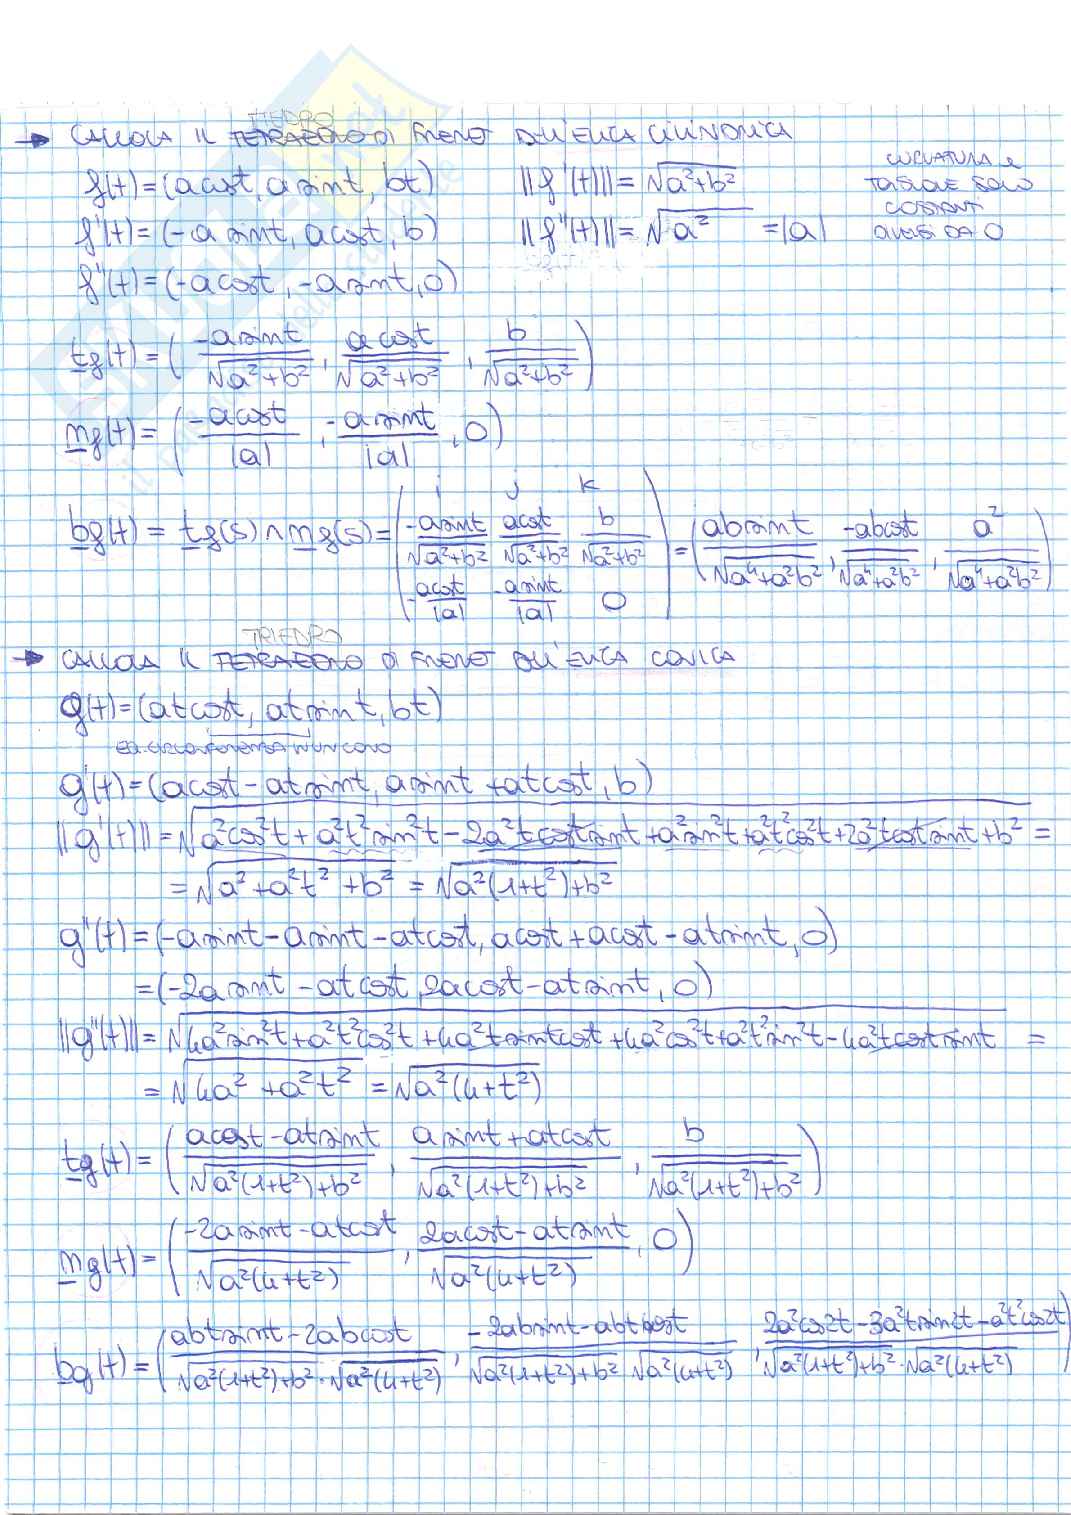 TRIEDRO
→ CALCOLA IL TETRAEDRO DI FRENET DELL'ELICA CILINDRICA
f(t)=(a cost, a sint, bt)   ||f'(t)||=√(a²+b²)
CURVATURA e
TORSIONE SONO
COSTANTI
DIVERSI DA 0
f'(t)=(-a sint, a cost, b)   ||f''(t)||=√(a²) =|a|
f''(t)=(-a cost, -a sint, 0)
tf(t)=(-a sint/√(a²+b²), a cost/√(a²+b²), b/√(a²+b²))
nf(t)=(-a cost/|a|, -a sint/|a|, 0)
bf(t)= tf(s)∧nf(s)=( i j k
-a sint/√(a²+b²) a cost/√(a²+b²) b/√(a²+b²)
-a cost/|a| -a sint/|a| 0 ) = (ab sint/√(a⁴+a²b²), -ab cost/√(a⁴+a²b²), a²/√(a⁴+a²b²))
TRIEDRO
→ CALCOLA IL TETRAEDRO DI FRENET DELL'ELICA CONICA
g(t)=(at cost, at sint, bt)
ea. CIRCONFERENZA IN UN CONO
g'(t)=(a cost-at sint, a sint+at cost, b)
||g'(t)||=√(a²cos²t+a²t²sin²t-2a²t cost sint+a²sin²t+a²t²cos²t+2a²t cost sint+b²) =
=√(a²+a²t²+b²) = √(a²(1+t²)+b²)
g''(t)=(-a sint-a sint-at cost, a cost+a cost-at sint, 0)
=(-2a sint-at cost, 2a cost-at sint, 0)
||g''(t)||=√(4a²sin²t+a²t²cos²t+4a²t sint cost+4a²cos²t+a²t²sin²t-4a²t cost sint) =
=√(4a²+a²t²) = √(a²(4+t²))
tg(t)=((a cost-at sint)/√(a²(1+t²)+b²), (a sint+at cost)/√(a²(1+t²)+b²), b/√(a²(1+t²)+b²))
ng(t)=((-2a sint-at cost)/√(a²(4+t²)), (2a cost-at sint)/√(a²(4+t²)), 0)
bg(t)=((abt sint-2ab cost)/(√(a²(1+t²)+b²)·√(a²(4+t²))), (-2ab sint-abt cost)/(√(a²(1+t²)+b²) √(a²(4+t²))), (2a²cos2t-3a²t sin2t-a²t²cos2t)/(√(a²(1+t²)+b²)·√(a²(4+t²))))